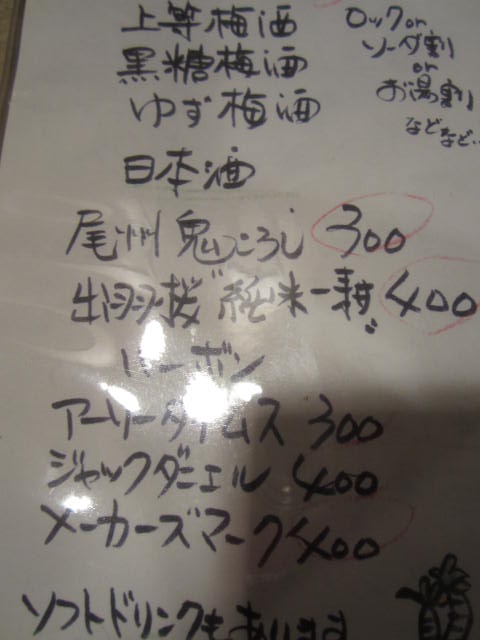 上等梅酒
黒糖梅酒
ゆず梅酒
ロックor
ソーダ割
or
お湯割
などなど…
日本酒
尾州鬼ころし 300
出羽桜"純米一耕" 400
バーボン
アーリータイムス 300
ジャックダニエル 400
メーカーズマーク 400
ソフトドリンクもあります